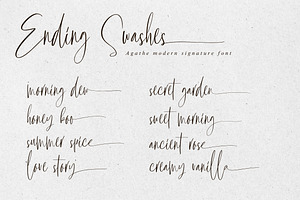 Ending Swashes
Agathe modern signature font
morning dew
honey boo
summer spice
love story
secret garden
sweet morning
ancient rose
creamy vanilla